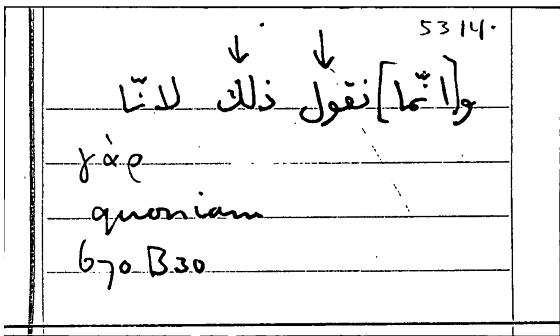 5314.
و[انّما] نقول ذلك لانّا
γὰρ
quoniam
670 B30